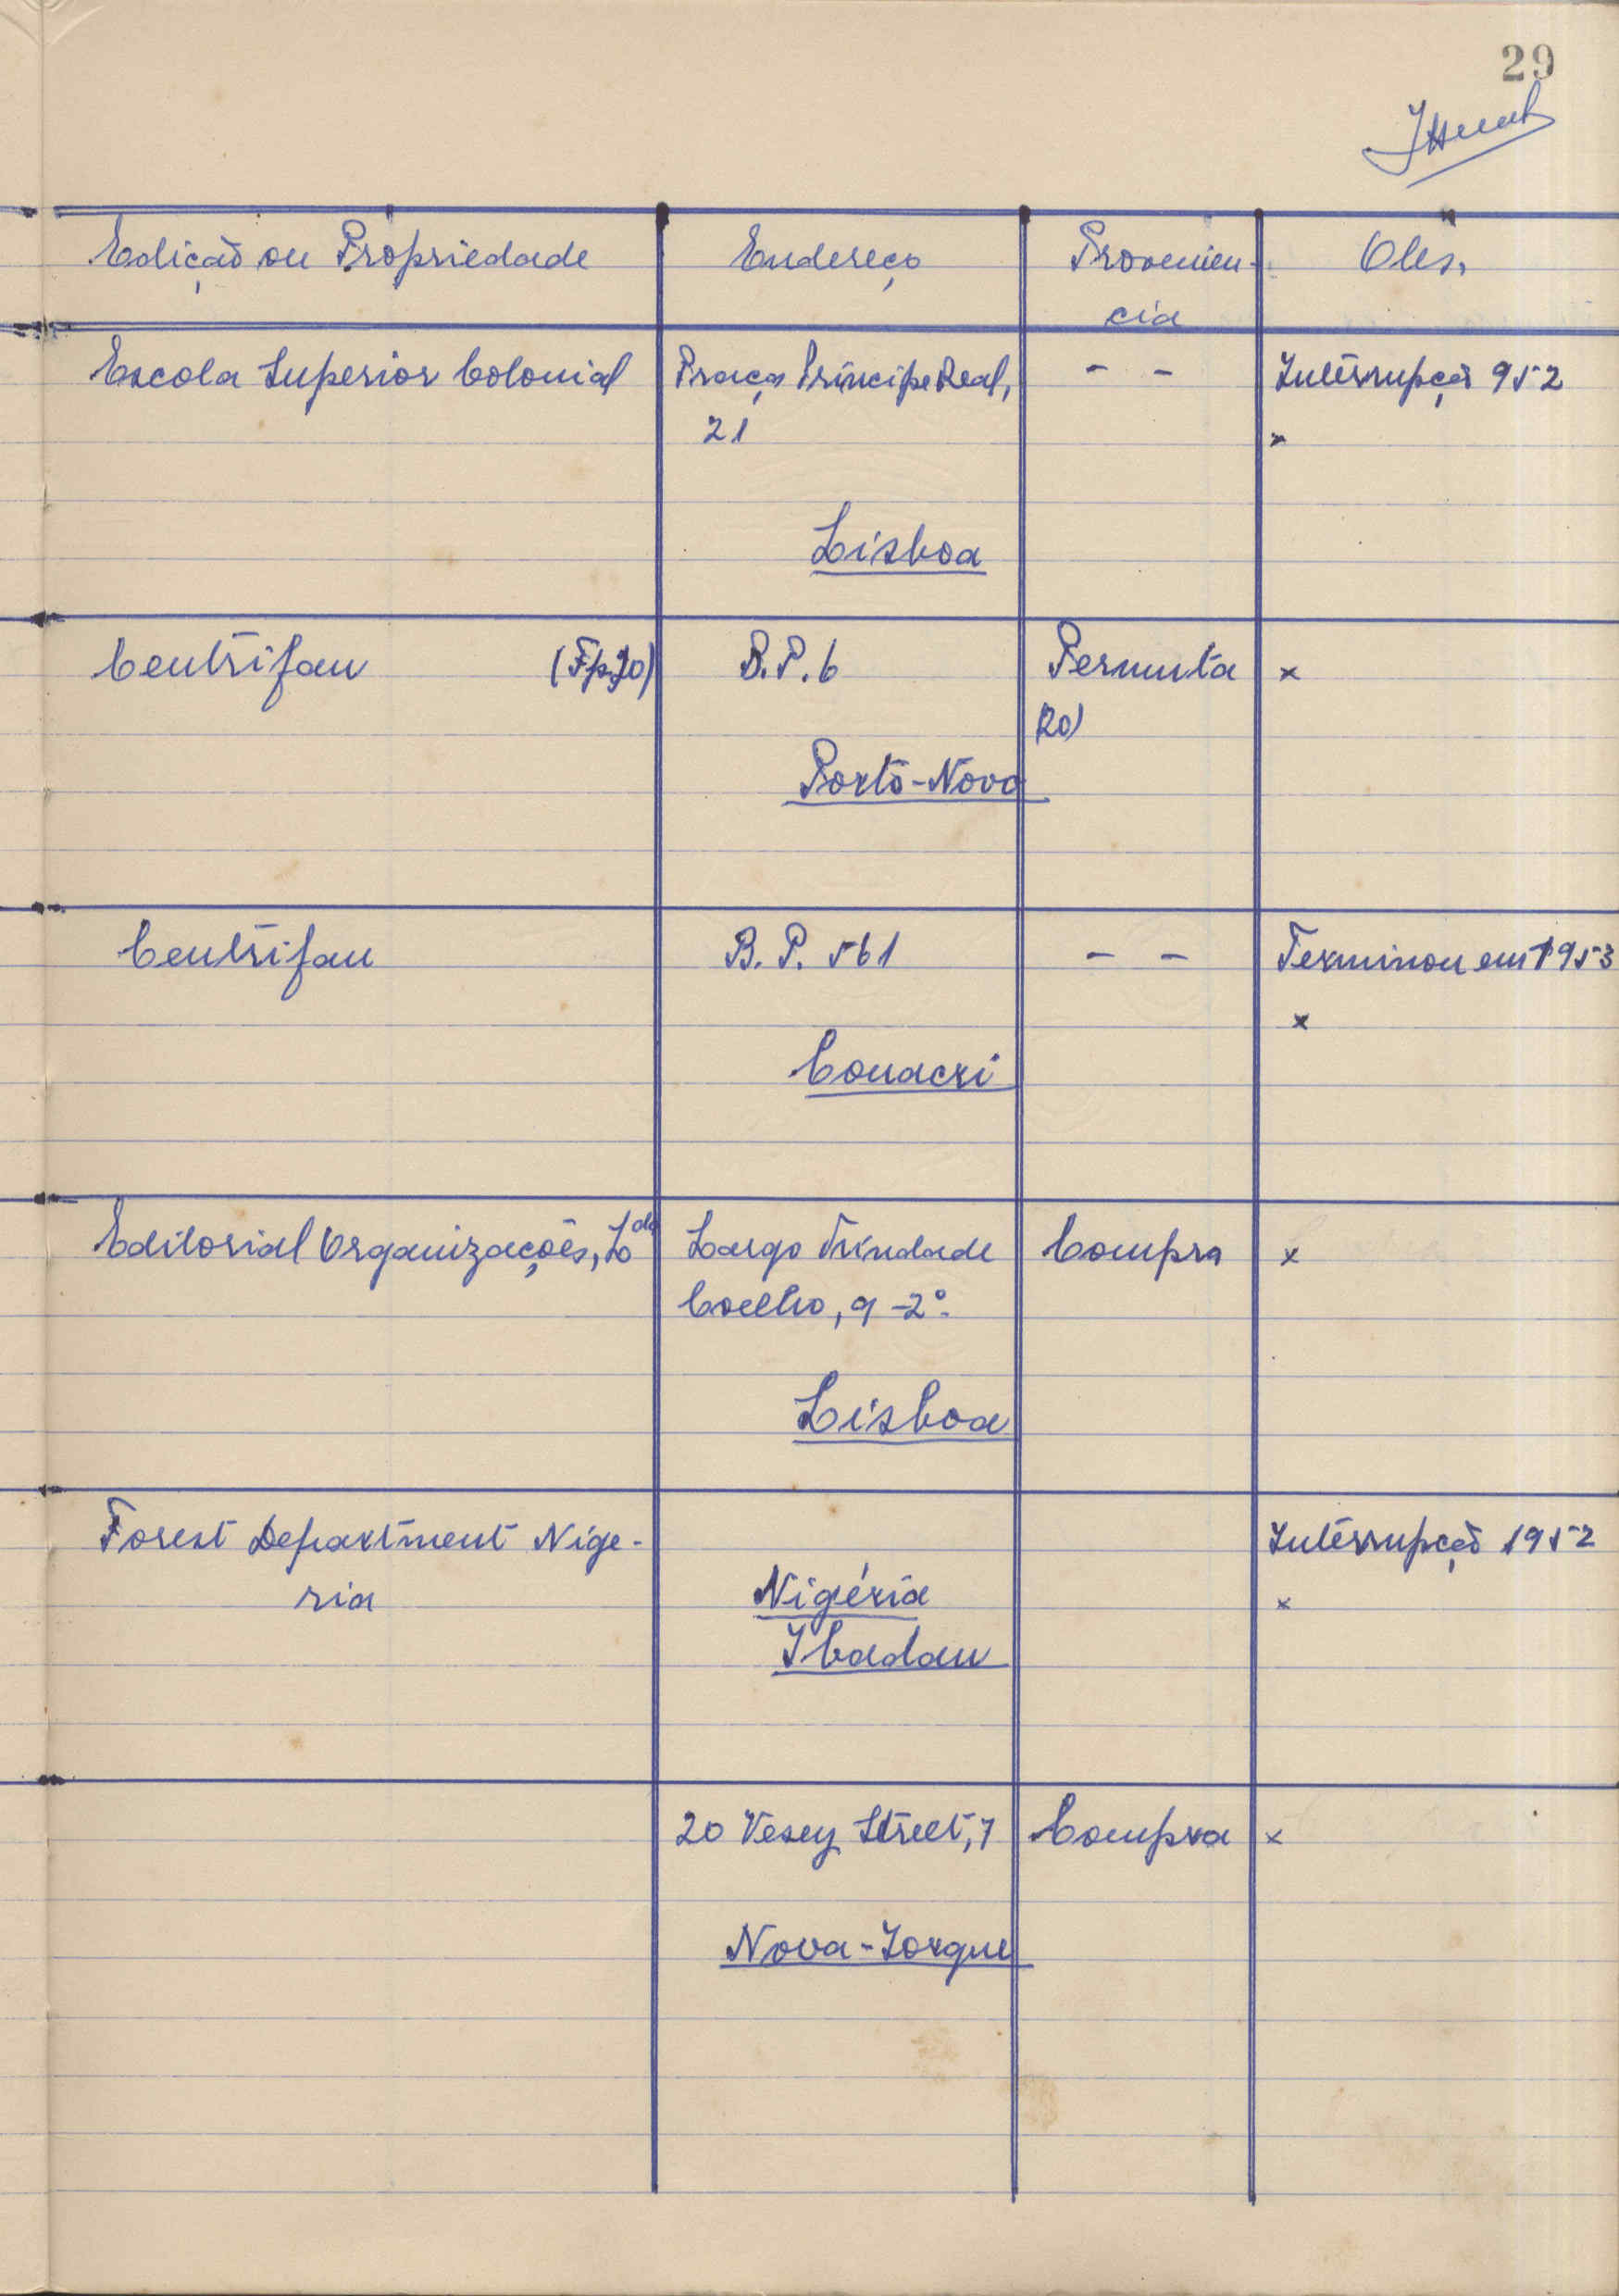 29
Edição ou Propriedade Endereço Provenien- Obs.
cia
Escola Superior Colonial Praça Príncipe Real, - - Interrupção 952
21 x
Lisboa
Centrifan B.P. 6 Permuta x
(20)
Porto-Novo
Centrifan B.P. 561 - - Terminou em 1953
x
Conacri
Editorial Organizações, Lda Largo Trindade Compra x
Coelho, 9-2º.
Lisboa
Forest Department Nige- Interrupção 1952
ria Nigéria x
Ibadan
20 Vesey Street, 7 Compra x
Nova-Iorque